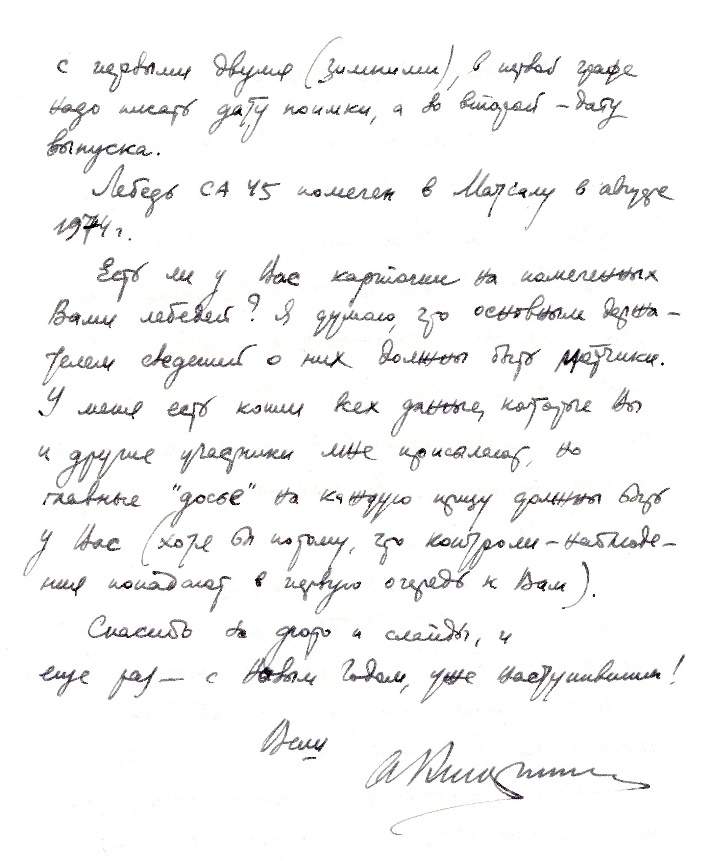 с первыми двумя (зимними), в первой графе
надо писать дату поимки, а во второй – дату
выпуска.
Лебедь СА 45 помечен в Матсалу в августе
1974 г.
Есть ли у Вас карточки на помеченных
Вами лебедей? Я думаю, что основным держа-
телем сведений о них должны быть метчики.
У меня есть копии всех данных, которые Вы
и другие участники мне присылают, но
главные "досье" на каждую птицу должны быть
у Вас (хотя бы потому, что контроли-наблюде-
ния попадают в первую очередь к Вам).
Спасибо за фото и слайды, и
еще раз – с Новым Годом, уже наступившим!
Ваш